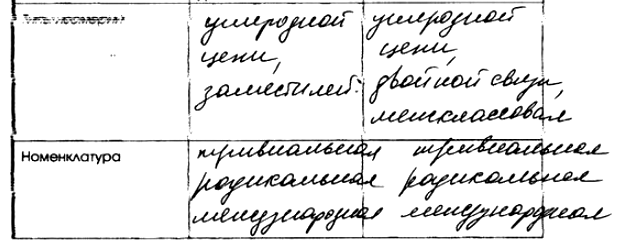 Типы изомерии
углеродной углеродной
цепи, цепи,
заместилей. двойной связи,
межклассовая
Номенклатура
тривиальная тривиальная
радикальная радикальная
международная международная